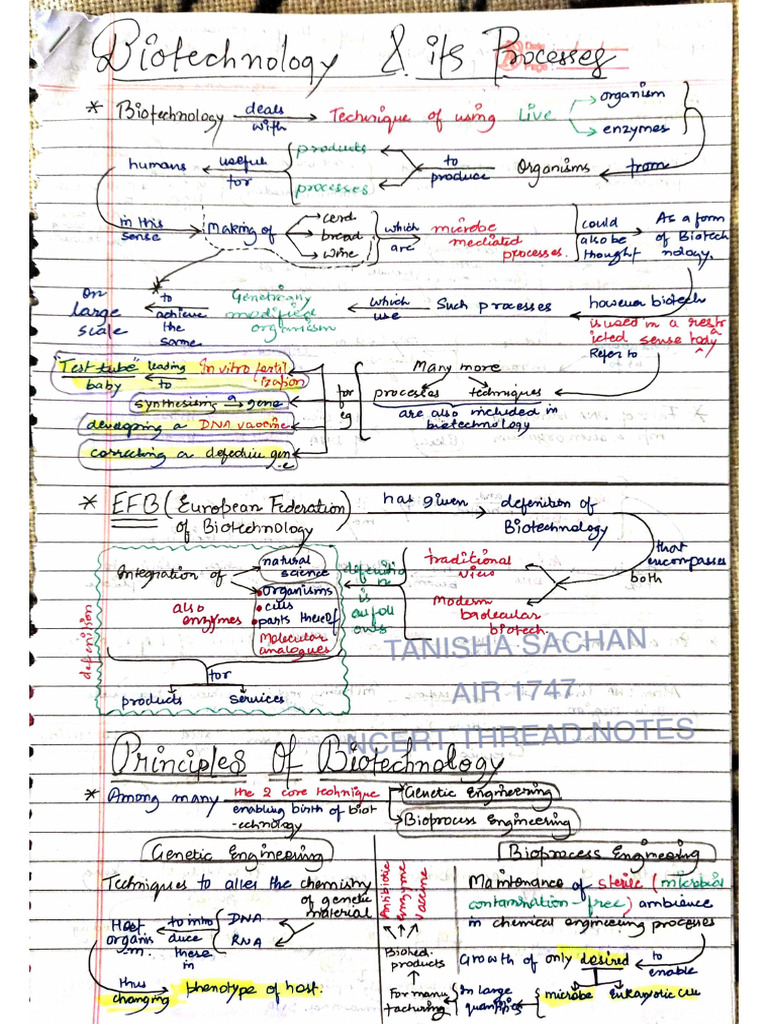 Biotechnology & its Processes
Date
Page
* Biotechnology deals with Technique of using Live organism
enzymes
humans useful for products processes to produce Organisms from
in this sense Making of curd bread wine which are microbe mediated processes. could also be thought As a form of Biotech nology.
on large scale to achieve the same Genetically modified organism which use Such processes however biotech is used in a restr icted sense today
Refer to
"Test tube" baby leading to in vitro fertil ization
Many more
processes techniques
for eg
synthesising a gene
are also included in biotechnology
developing a DNA vaccine
correcting a defective gen -e
* EFB (European Federation of Biotechnology) has given defenition of Biotechnology
that encompasses both
traditional view
Modern molecular biotech.
defenitio n is as foll ows
defenition
Integration of natural science
organisms
also enzymes
cells
parts thereof
Molecular analogues
for
products services
TANISHA SACHAN
AIR 1747
NCERT THREAD NOTES
Principles Of Biotechnology
* Among many the 2 core technique Genetic Engineering
enabling birth of biot -echnology Bioprocess Engineering
Genetic Engineering
Techniques to alter the chemistry of genetic material
DNA
RNA
to intro duce these in
Host organis m.
thus changing phenotype of host.
Bioprocess Engineering
Maintenance of sterile (microbial contamination-free) ambience in chemical engineering processes
to enable
Growth of only desired
microbe eukaryotic cell
in large quantities
For manu facturing
Biotech. products
Antibiotic
enzyme
vaccine